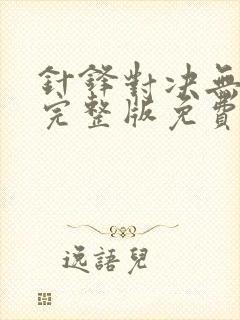 針鋒對决無
完整版免費
逸語兒